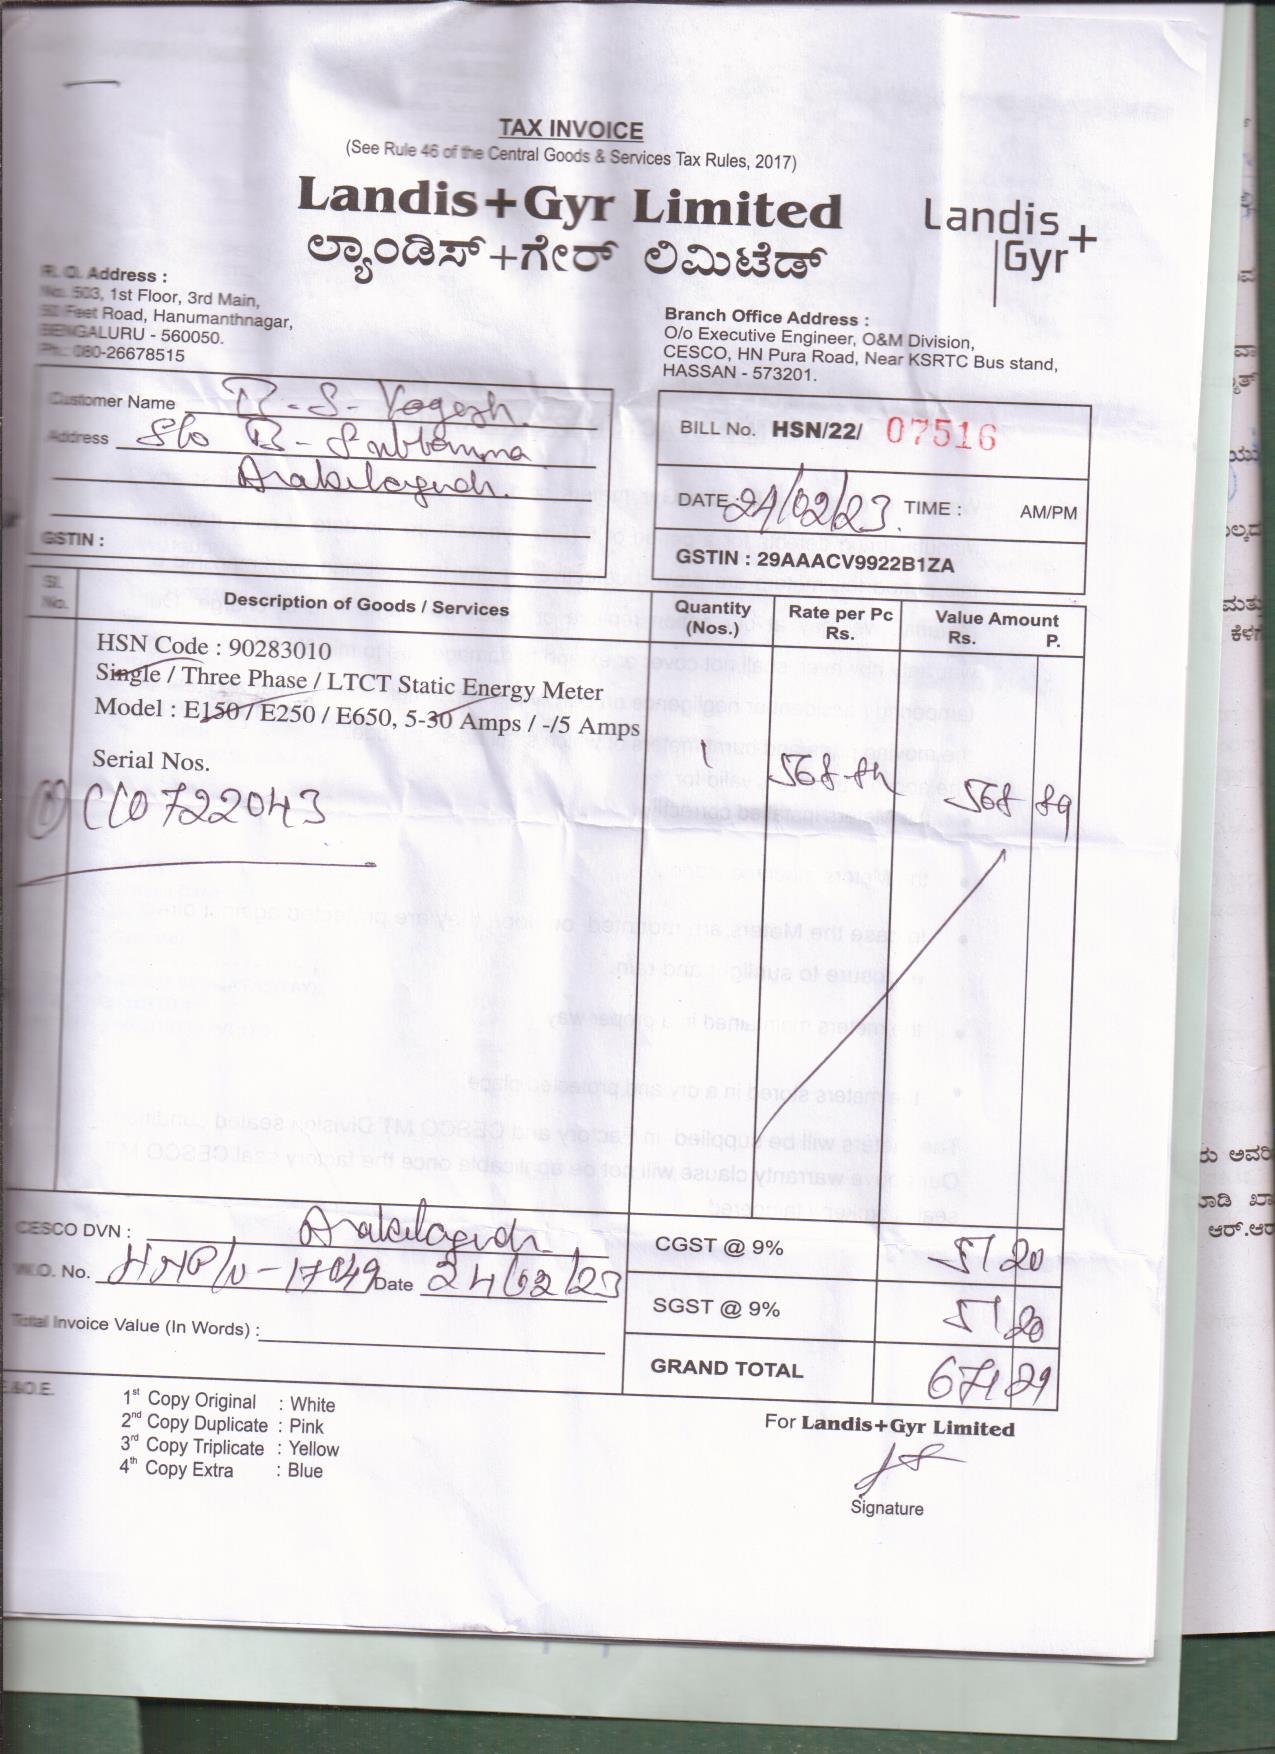 TAX INVOICE
(See Rule 46 of the Central Goods & Services Tax Rules, 2017)
Landis+Gyr Limited
ಲ್ಯಾಂಡಿಸ್+ಗೇರ್ ಲಿಮಿಟೆಡ್
Landis
Gyr+
R. O. Address :
No. 503, 1st Floor, 3rd Main,
50 Feet Road, Hanumanthnagar,
BENGALURU - 560050.
Ph.: 080-26678515
Branch Office Address :
O/o Executive Engineer, O&M Division,
CESCO, HN Pura Road, Near KSRTC Bus stand,
HASSAN - 573201.
Customer Name B-S-Yogesh
Address S/o B-
Arakalagudu.
GSTIN :
BILL No. HSN/22/ 07516
DATE : 24/02/23. TIME : AM/PM
GSTIN : 29AAACV9922B1ZA
Sl. No. Description of Goods / Services Quantity (Nos.) Rate per Pc Rs. Value Amount Rs. P.
HSN Code : 90283010
Single / Three Phase / LTCT Static Energy Meter
Model : E150 / E250 / E650, 5-30 Amps / -/5 Amps
Serial Nos.
1 CC0722043 1 568-89 568 89
CESCO DVN : Arakalagudu
W.O. No. HNP/N-17049 Date 24/02/23
Total Invoice Value (In Words) :
CGST @ 9% 51 20
SGST @ 9% 51 20
GRAND TOTAL 671 29
E.&O.E.
1st Copy Original : White
2nd Copy Duplicate : Pink
3rd Copy Triplicate : Yellow
4th Copy Extra : Blue
For Landis+Gyr Limited
Signature